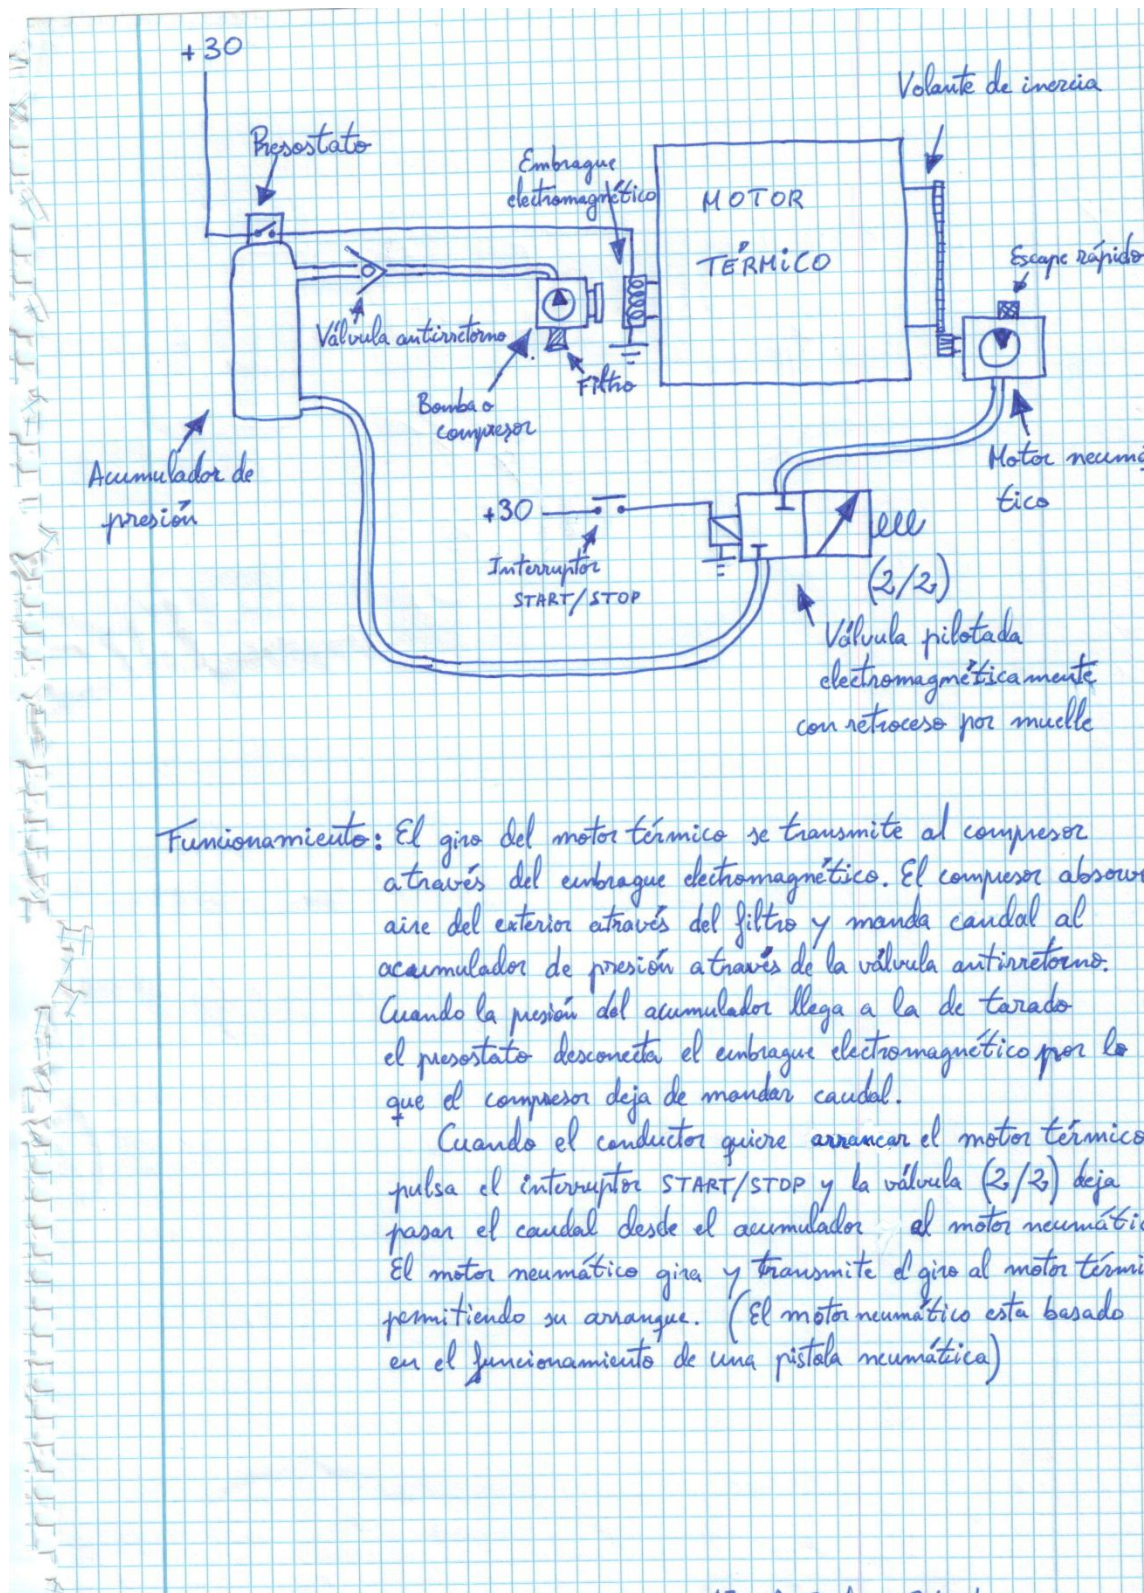 +30
Volante de inercia
Presostato
Embrague
electromagnético
MOTOR
TÉRMICO
Escape rápido
Válvula antirretorno
Filtro
Bomba o
compresor
Acumulador de
presión
Motor neumá
tico
+30
Interruptor
START/STOP
(2/2)
Válvula pilotada
electromagnéticamente
con retroceso por muelle
Funcionamiento: El giro del motor térmico se transmite al compresor
através del embrague electromagnético. El compresor absorv
aire del exterior através del filtro y manda caudal al
acumulador de presión através de la válvula antirretorno.
Cuando la presión del acumulador llega a la de tarado
el presostato desconecta el embrague electromagnético por lo
que el compresor deja de mandar caudal.
Cuando el conductor quiere arrancar el motor térmico
pulsa el interruptor START/STOP y la válvula (2/2) deja
pasar el caudal desde el acumulador al motor neumátic
El motor neumático gira y transmite el giro al motor térmi
permitiendo su arranque. (El motor neumático esta basado
en el funcionamiento de una pistola neumática)